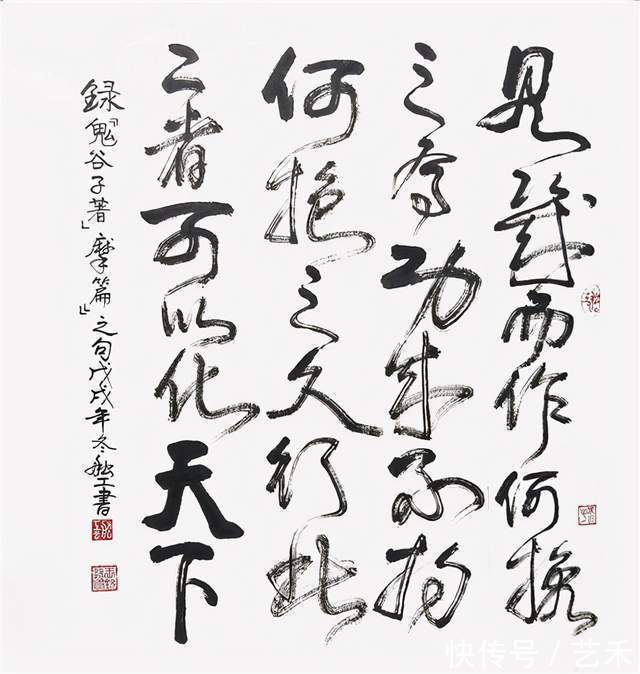 見幾而作何晚
之有功成不拘
何抱之久行此
二者可以化天下
録『鬼谷子著」摩篇』之句戊戌年冬書
快传号 / 艺禾